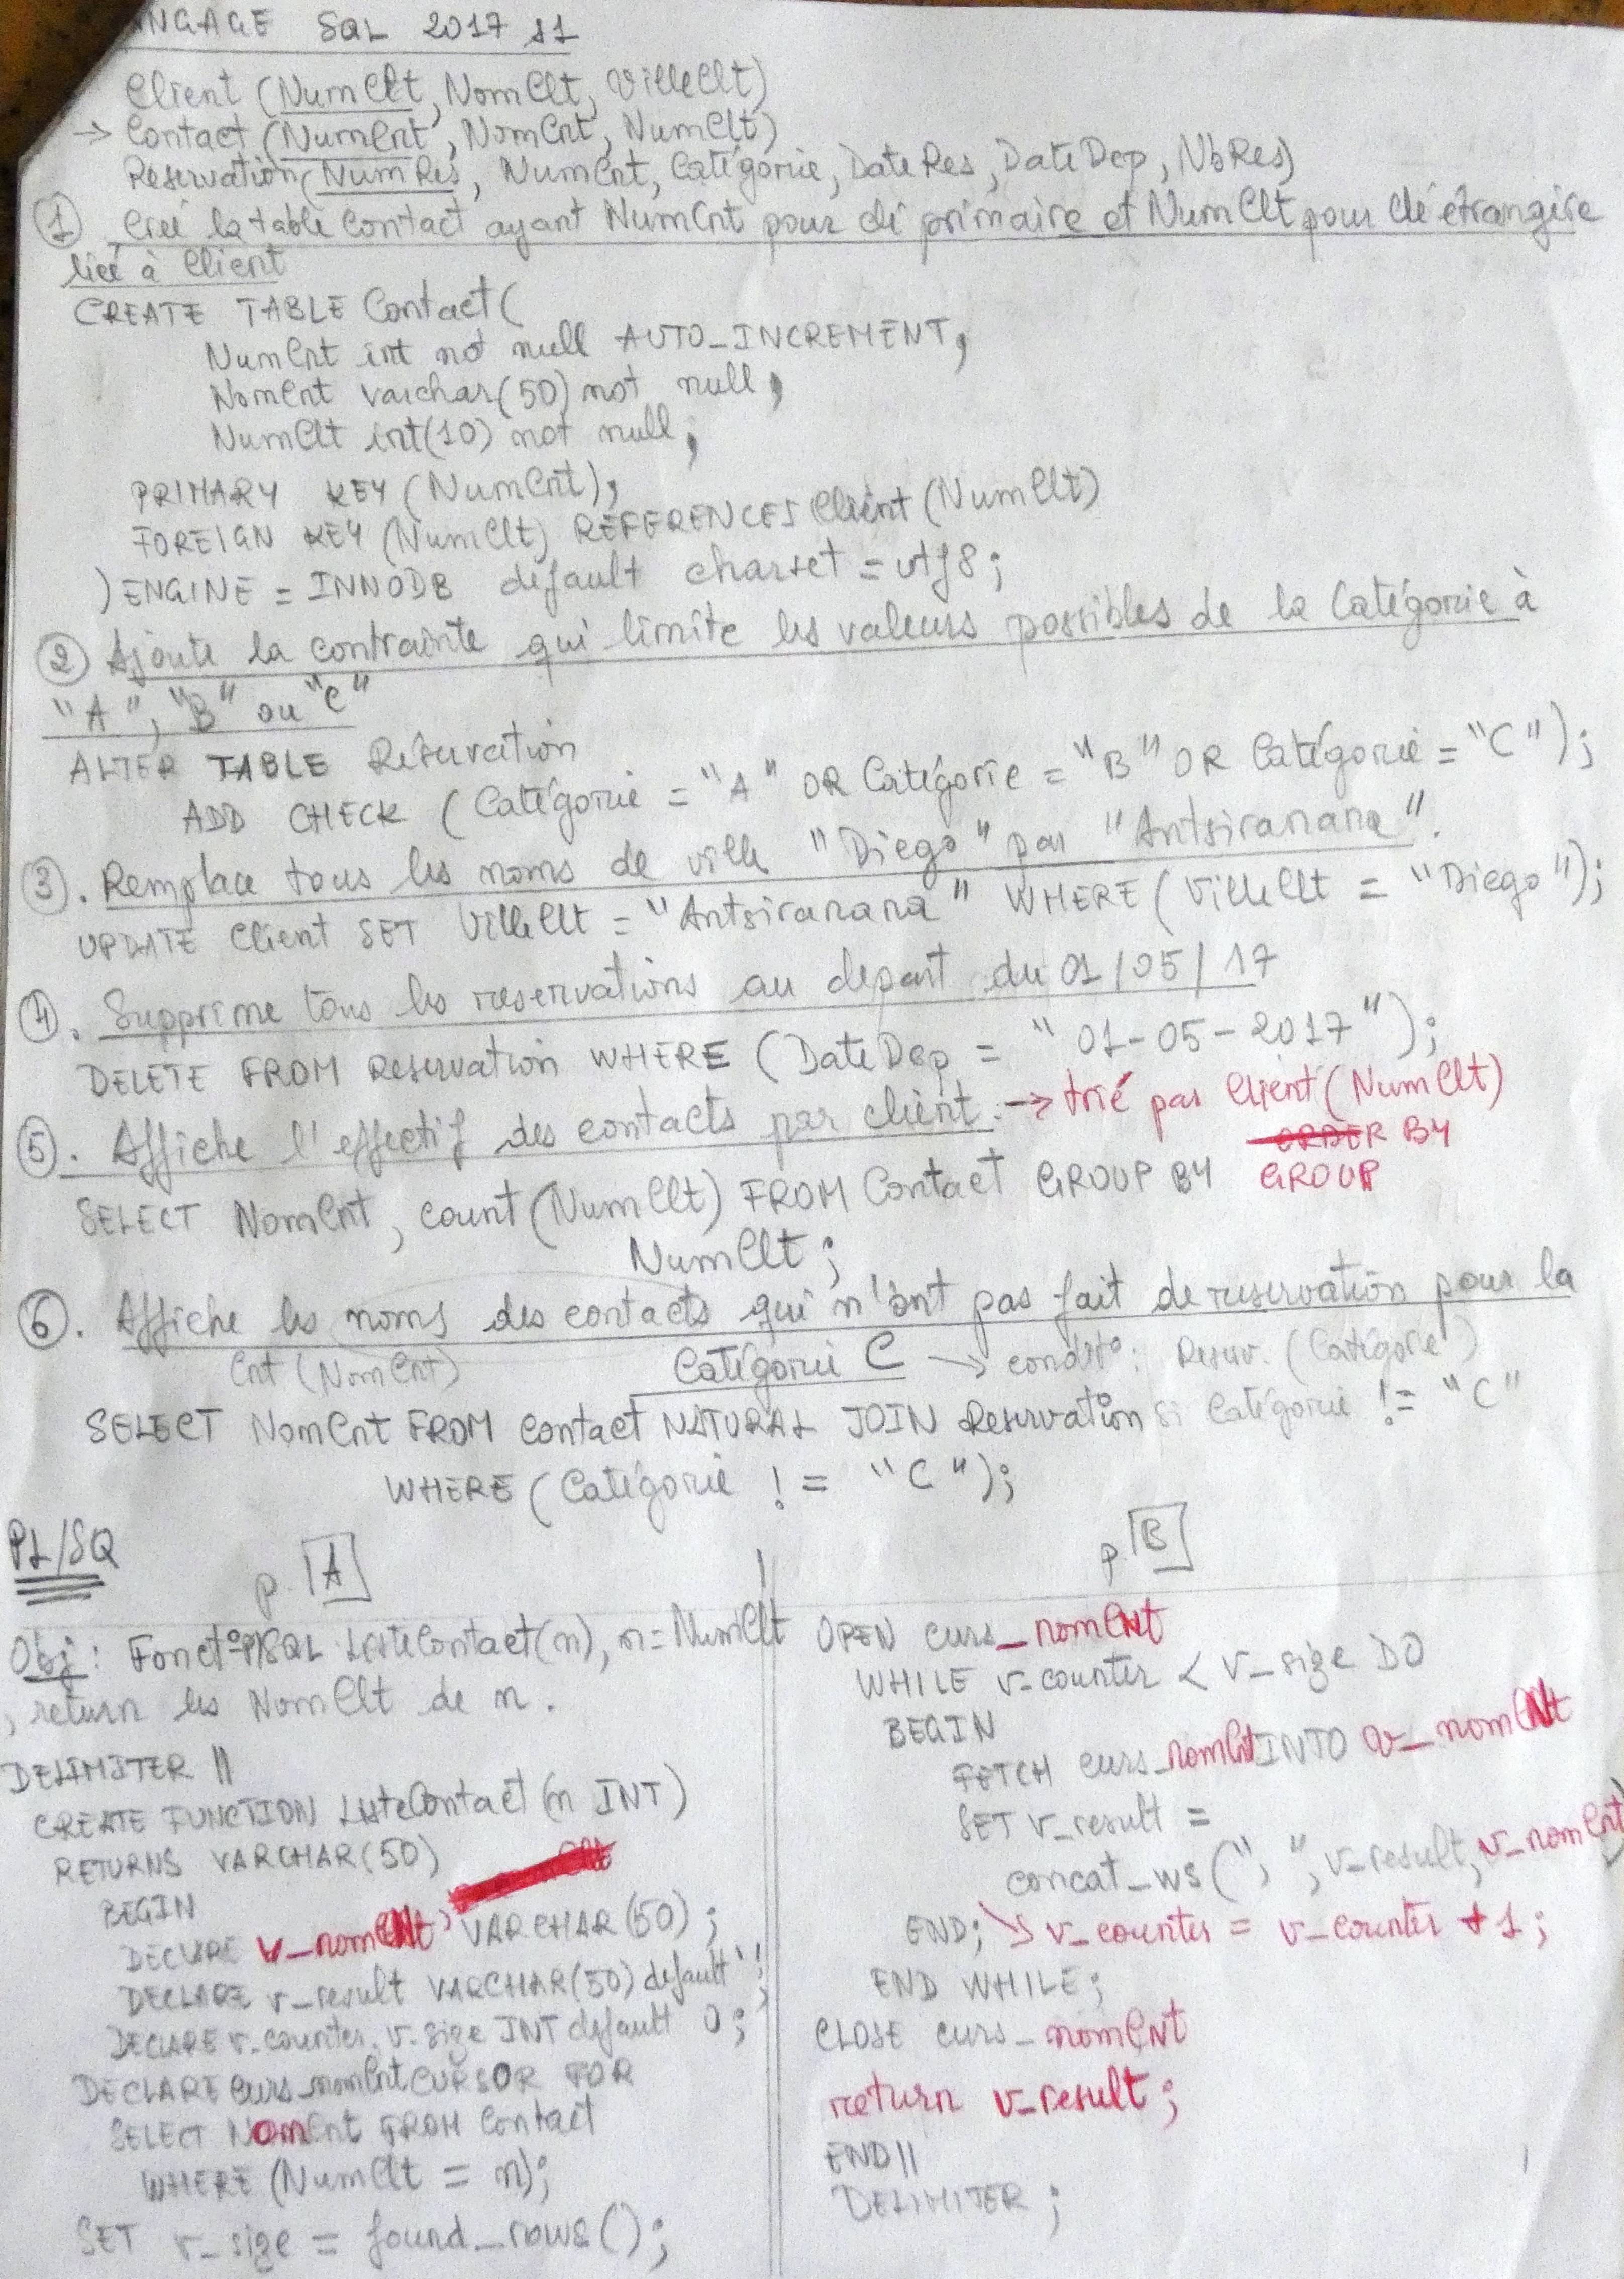 NGAGE SQL 2017 S1
Client (NumClt, NomClt, VilleClt)
→ Contact (NumCnt, NomCnt, NumClt)
Reservation (NumRes, NumCnt, Catégorie, DateRes, DateDep, NbRes)
① Créé la table Contact ayant NumCnt pour clé primaire et NumClt pour clé étrangère
liée à Client
CREATE TABLE Contact (
NumCnt int not null AUTO_INCREMENT,
NomCnt varchar(50) not null,
NumClt int(10) not null,
PRIMARY KEY (NumCnt),
FOREIGN KEY (NumClt) REFERENCES Client (NumClt)
) ENGINE = INNODB default charset = utf8;
② Ajoute la contrainte qui limite les valeurs possibles de la Catégorie à
"A", "B" ou "C"
ALTER TABLE Réservation
ADD CHECK (Catégorie = "A" OR Catégorie = "B" OR Catégorie = "C");
③. Remplace tous les noms de ville "Diego" par "Antsiranana".
UPDATE Client SET VilleClt = "Antsiranana" WHERE (VilleClt = "Diego");
④. Supprime tous les reservations au depart du 01/05/17
DELETE FROM Reservation WHERE (DateDep = "01-05-2017");
⑤. Affiche l'effectif des contacts par client. → trié par Client (NumClt)
ORDER BY
SELECT NomCnt, count(NumClt) FROM Contact GROUP BY GROUP
NumClt;
⑥. Affiche les noms des contacts qui n'ont pas fait de reservation pour la
Cnt (NomCnt) Catégorie C → condit°: Reserv. (Catégorie)
SELECT NomCnt FROM Contact NATURAL JOIN Reservation si Catégorie != "C"
WHERE (Catégorie != "C");
PL/SQ
p. A
Obj: Fonct° P/SQL ListeContact(n), n = NumClt
, return les NomClt de n.
DELIMITER ||
CREATE FUNCTION ListeContact (n INT)
RETURNS VARCHAR(50)
BEGIN
DECLARE v_nomCNt VARCHAR(50);
DECLARE v_result VARCHAR(50) default '';
DECLARE v_counter, v_size INT default 0;
DECLARE curs_nomCnt CURSOR FOR
SELECT NomCnt FROM Contact
WHERE (NumClt = n);
SET v_size = found_rows();
p. B
OPEN curs_nomCNt
WHILE v_counter < v_size DO
BEGIN
FETCH curs_nomCnt INTO v_nomCNt
SET v_result =
concat_ws(", ", v_result, v_nomCnt)
END; ↘ v_counter = v_counter + 1;
END WHILE;
CLOSE curs_nomCNt
return v_result;
END ||
DELIMITER ;